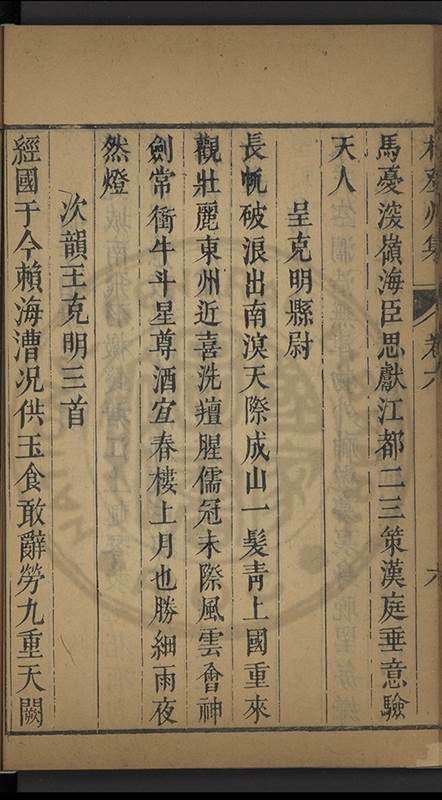 集 卷六 六
馬憂深嶺海臣思獻江都二三策漢庭垂意驗
天人
呈克明縣尉
長帆破浪出南溟天際成山一髮青上國重來
觀壯麗東州近喜洗羶腥儒冠未際風雲會神
劍常衝牛斗星尊酒宜春樓上月也勝細雨夜
然燈
次韻王克明三首
經國于今賴海漕況供玉食敢辭勞九重天闕